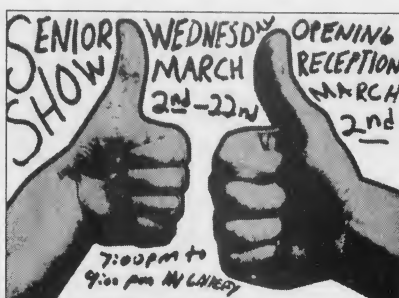 SENIOR
SHOW
WEDNESDAY
MARCH
2nd–22nd
OPENING
RECEPTION
MARCH
2nd
7:00 pm to
9:00 pm GALLERY